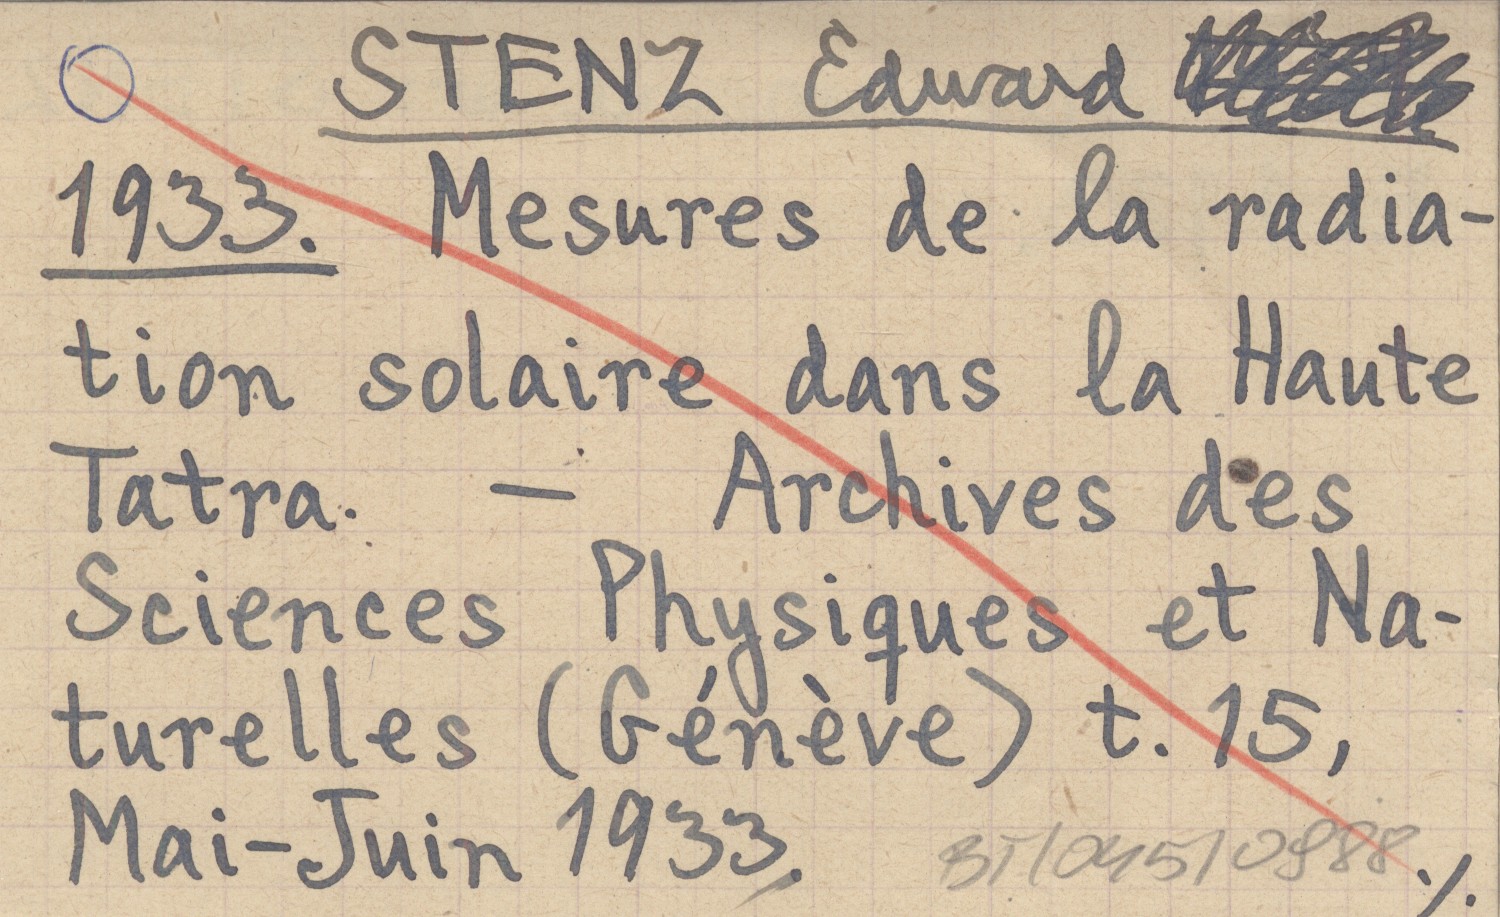 STENZ Edward
1933. Mesures de la radia-
tion solaire dans la Haute
Tatra. — Archives des
Sciences Physiques et Na-
turelles (Génève) t. 15,
Mai-Juin 1933.
BT/045/0988
./.